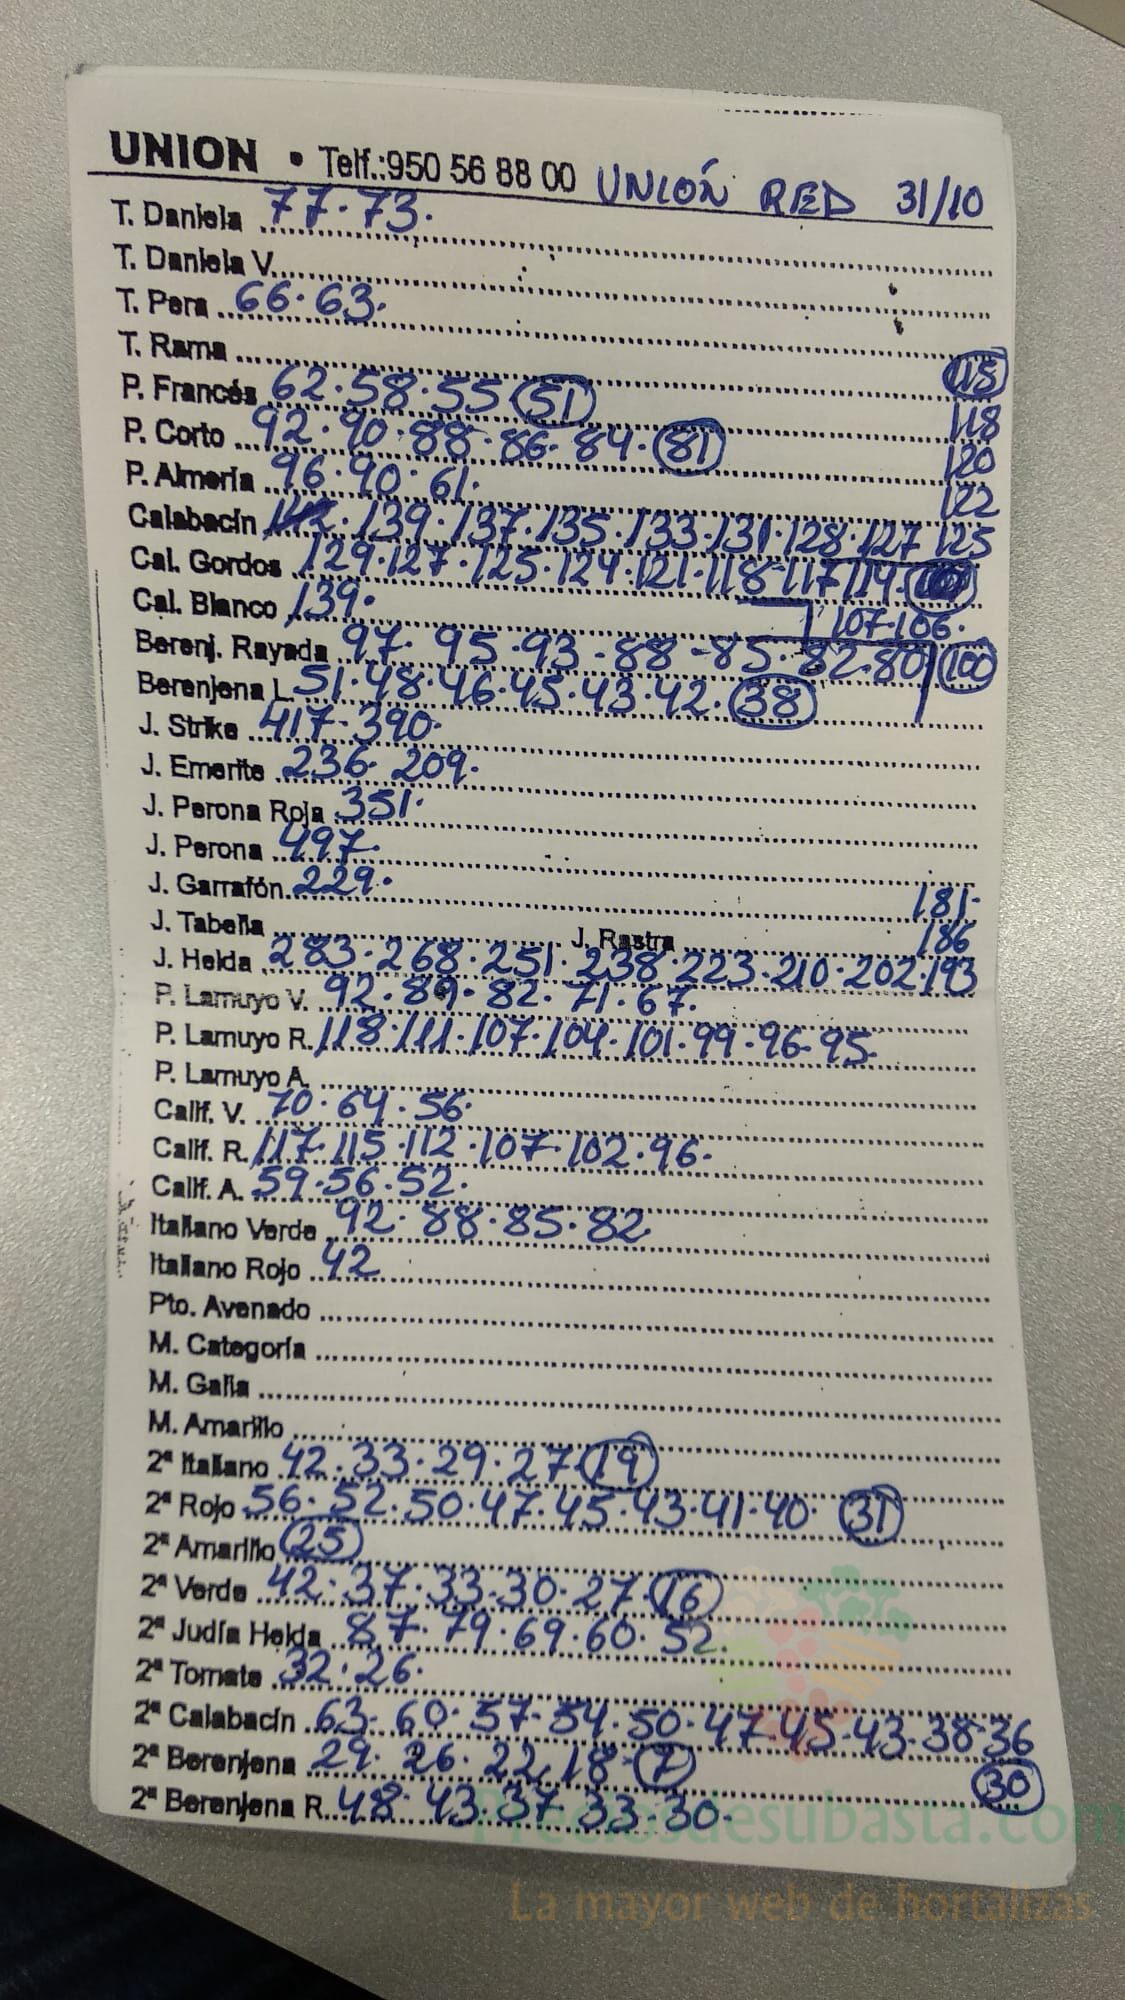 UNION • Telf.:950 56 88 00 UNIÓN RED 31/10
T. Daniela 77·73·
T. Daniela V.
T. Pera 66·63·
T. Rama
115
P. Francés 62·58·55 51
118
P. Corto 92·90·88·86·84·81
120
P. Almería 96·90·61·
122
Calabacín ·139·137·135·133·131·128·127 125
Cal. Gordos 129·127·125·124·121·118·117 114·
Cal. Blanco 139·
107·106·
Berenj. Rayada 97·95·93-88-85·82·80 100
Berenjena L. 51·48·46·45·43·42·38
J. Strike 417-390·
J. Emerite 236·209·
J. Perona Roja 351·
J. Perona 497·
J. Garrafón 229·
181·
J. Tabella J. Rastra
186
J. Helda 283·268·251·238·223·210·202·193
P. Lamuyo V. 92·89·82·71·67·
P. Lamuyo R. 118·111·107·104·101·99·96·95·
P. Lamuyo A.
Calif. V. 70·64·56·
Calif. R. 117·115·112·107·102·96·
Calif. A. 59·56·52·
Italiano Verde 92·88·85·82
Italiano Rojo 42
Pto. Avenado
M. Categoría
M. Galia
M. Amarillo
2ª Italiano 42·33·29·27·19
2ª Rojo 56·52·50·47·45·43·41·40·31
2ª Amarillo 25
2ª Verde 42·37·33·30·27·16
2ª Judía Helda 87·79·69·60·52·
2ª Tomate 32·26·
2ª Calabacín 63·60·57·54·50·47·45·43·38·36
30
2ª Berenjena 29·26·22·18·7
2ª Berenjena R. 48·43·37·33·30·
Preciosdesubasta.com
La mayor web de hortalizas